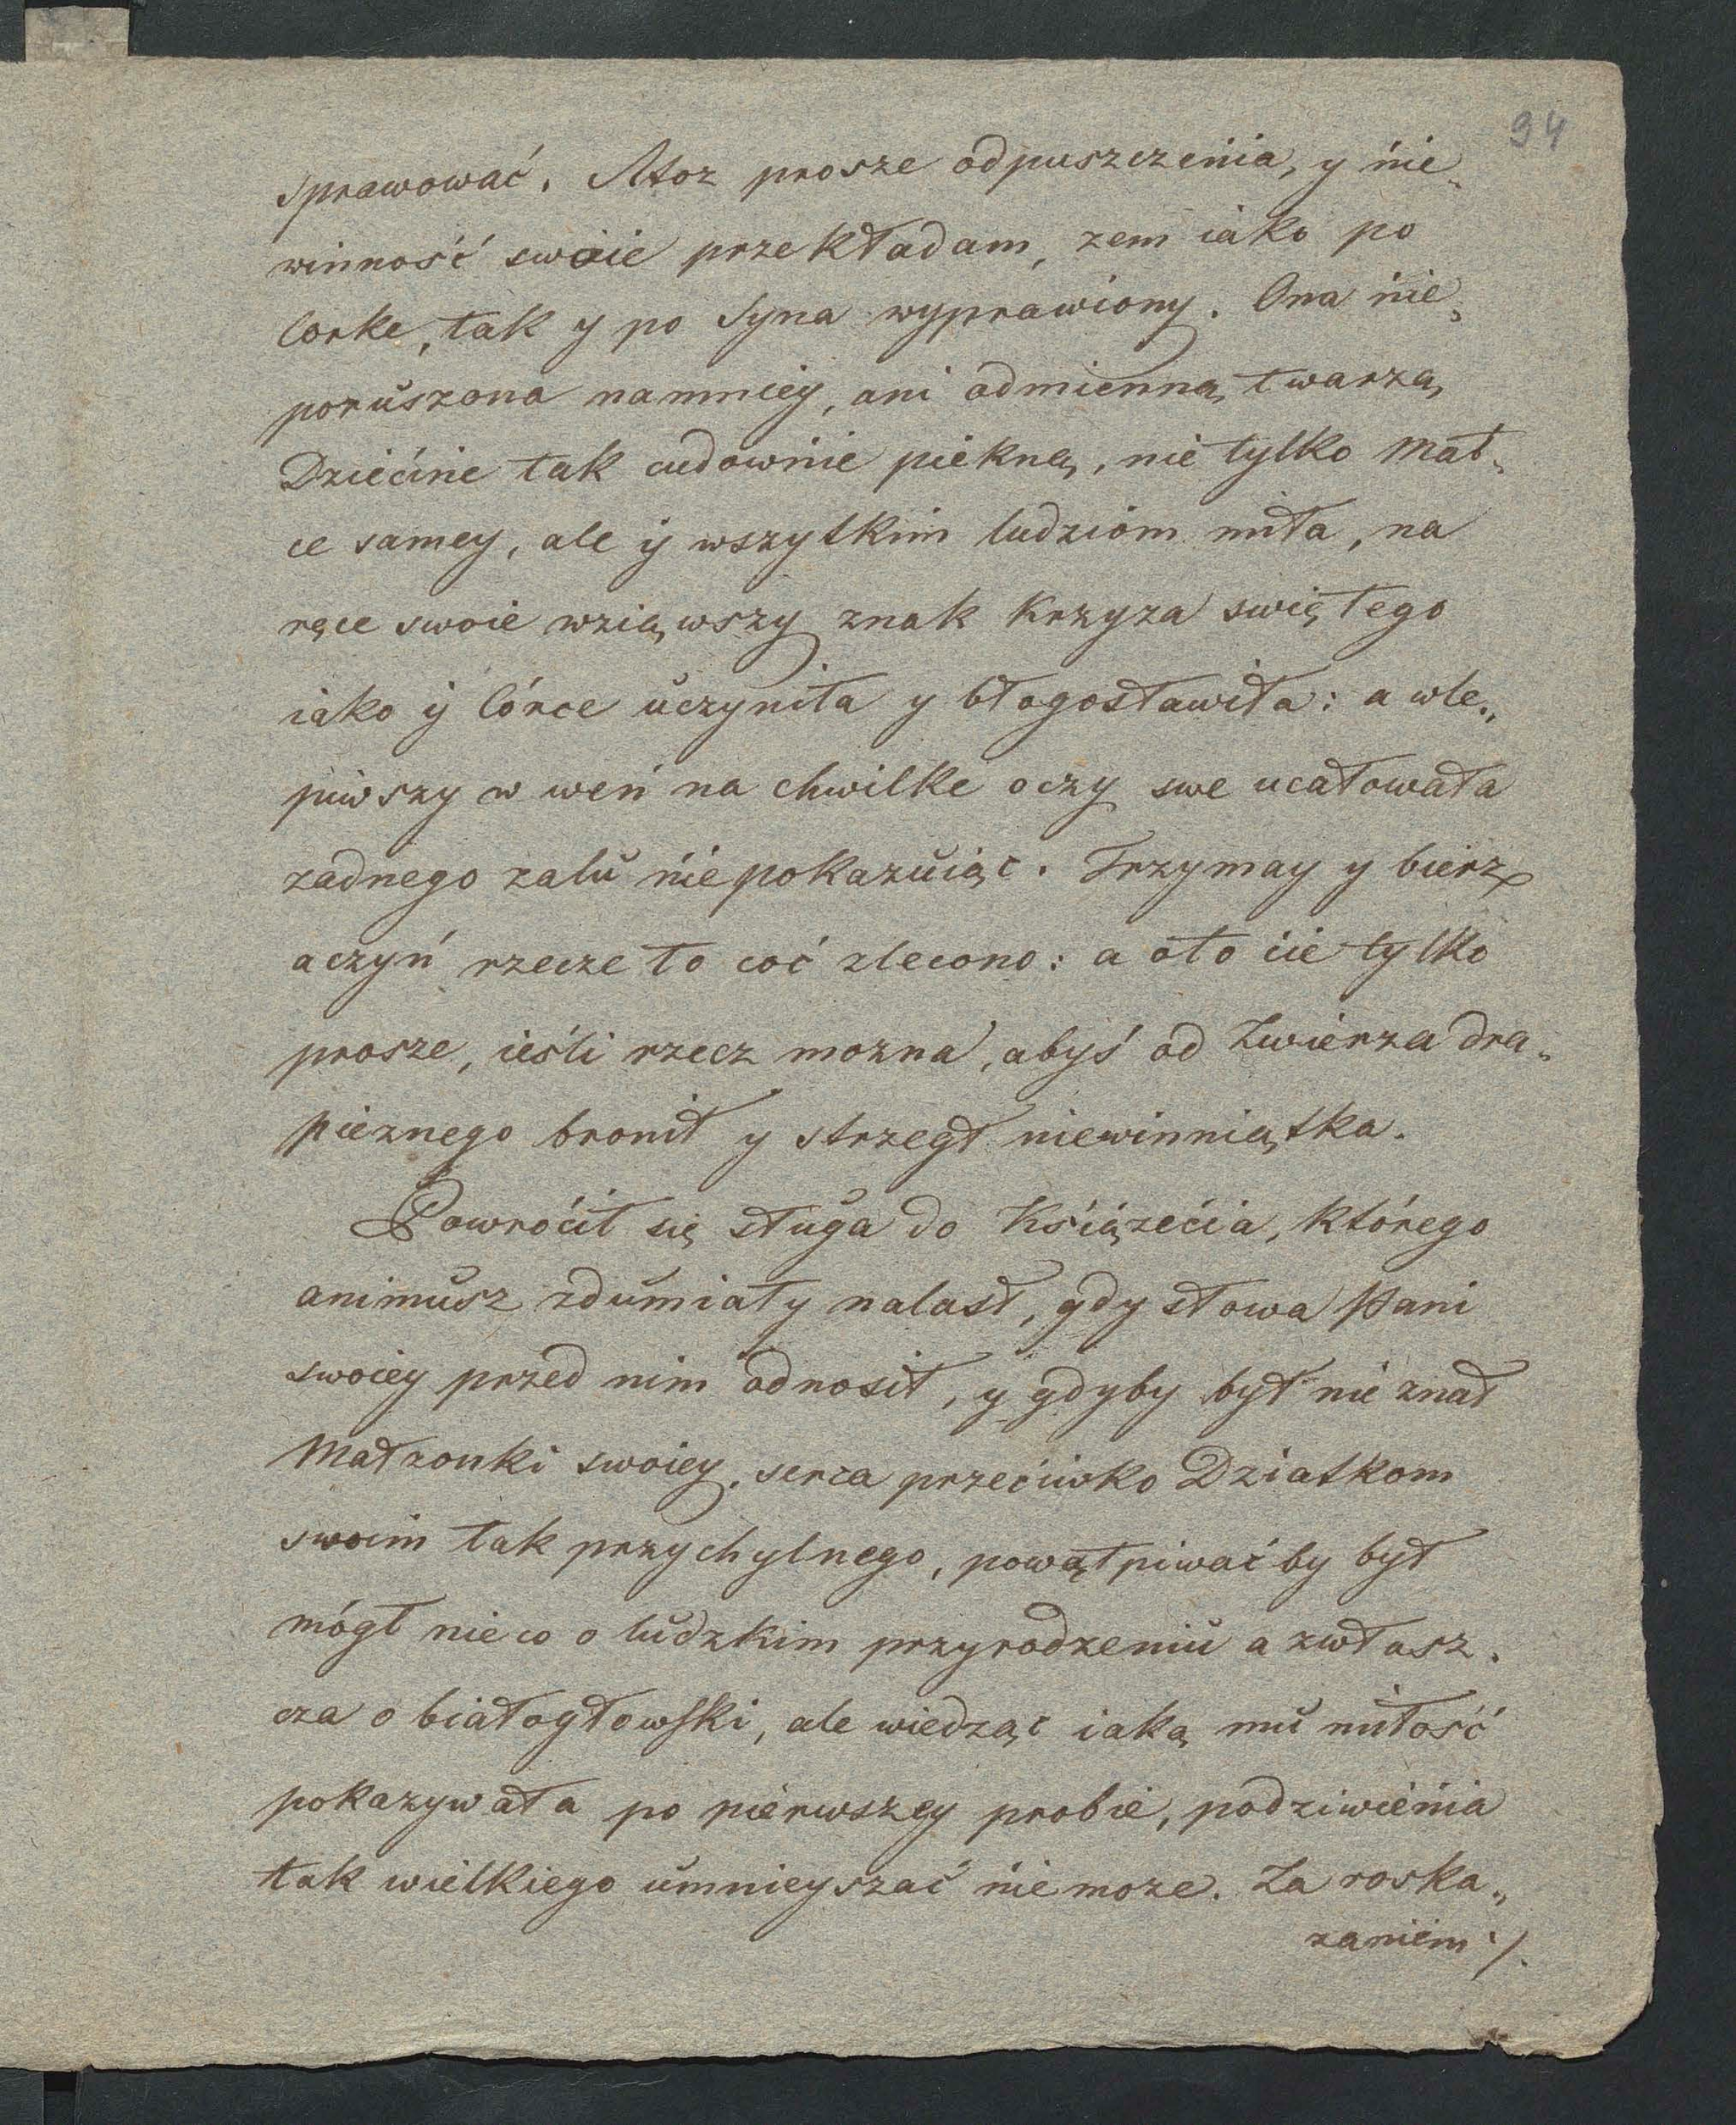 94
sprawować. Atoz prosze odpuszczenia, y nie„
winność swoie przekładam, zem iako po
Corke, tak y po Syna wyprawiony. Ona nie„
poruszona namniey, ani odmienną twarzą
Dziećine tak cudownie piekną, nie tylko Mat„
ce samey, ale ÿ wszytkim ludziom miła, na
ręce swoie wziąwszy znak Krzyza swiętego
iako ÿ Córce uczyniła y błogosławiła: a wle„
piwszy w weń na chwilke oczy swe ucałowała
zadnego zalu niepokazuiąc. Trzymay y bierz
aczyń rzecze to coć zlecono: a oto cie tylko
prosze, ieśli rzecz mozna, abyś od Zwierza dra„
pieznego bronił y strzegł niewinniątka.
Powroćił się sługa do Xsiązećia, którego
animusz zdumiały nalasł, gdy słowa Pani
swoiey przed nim odnosił, y gdyby był nie znał
Małzonki swoiey, serca przećiwko Dziatkom
swoim tak przychylnego, powątpiwać by był
mógł nieco o ludzkim przyrodzeniu a zwłasz„
cza o białogłowski, ale wiedząc iaką mu miłość
pokazywała po pierwszey probie, podziwienia
tak wielkiego umnieyszać niemoze. Za roska„
zaniem ·/.